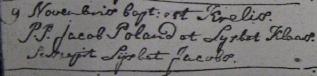 9 Novembris bapt: est Krelis.
P.P. Jacob Roland et Sijtet Klaas.
Suscepit Sijtet Jacobs.